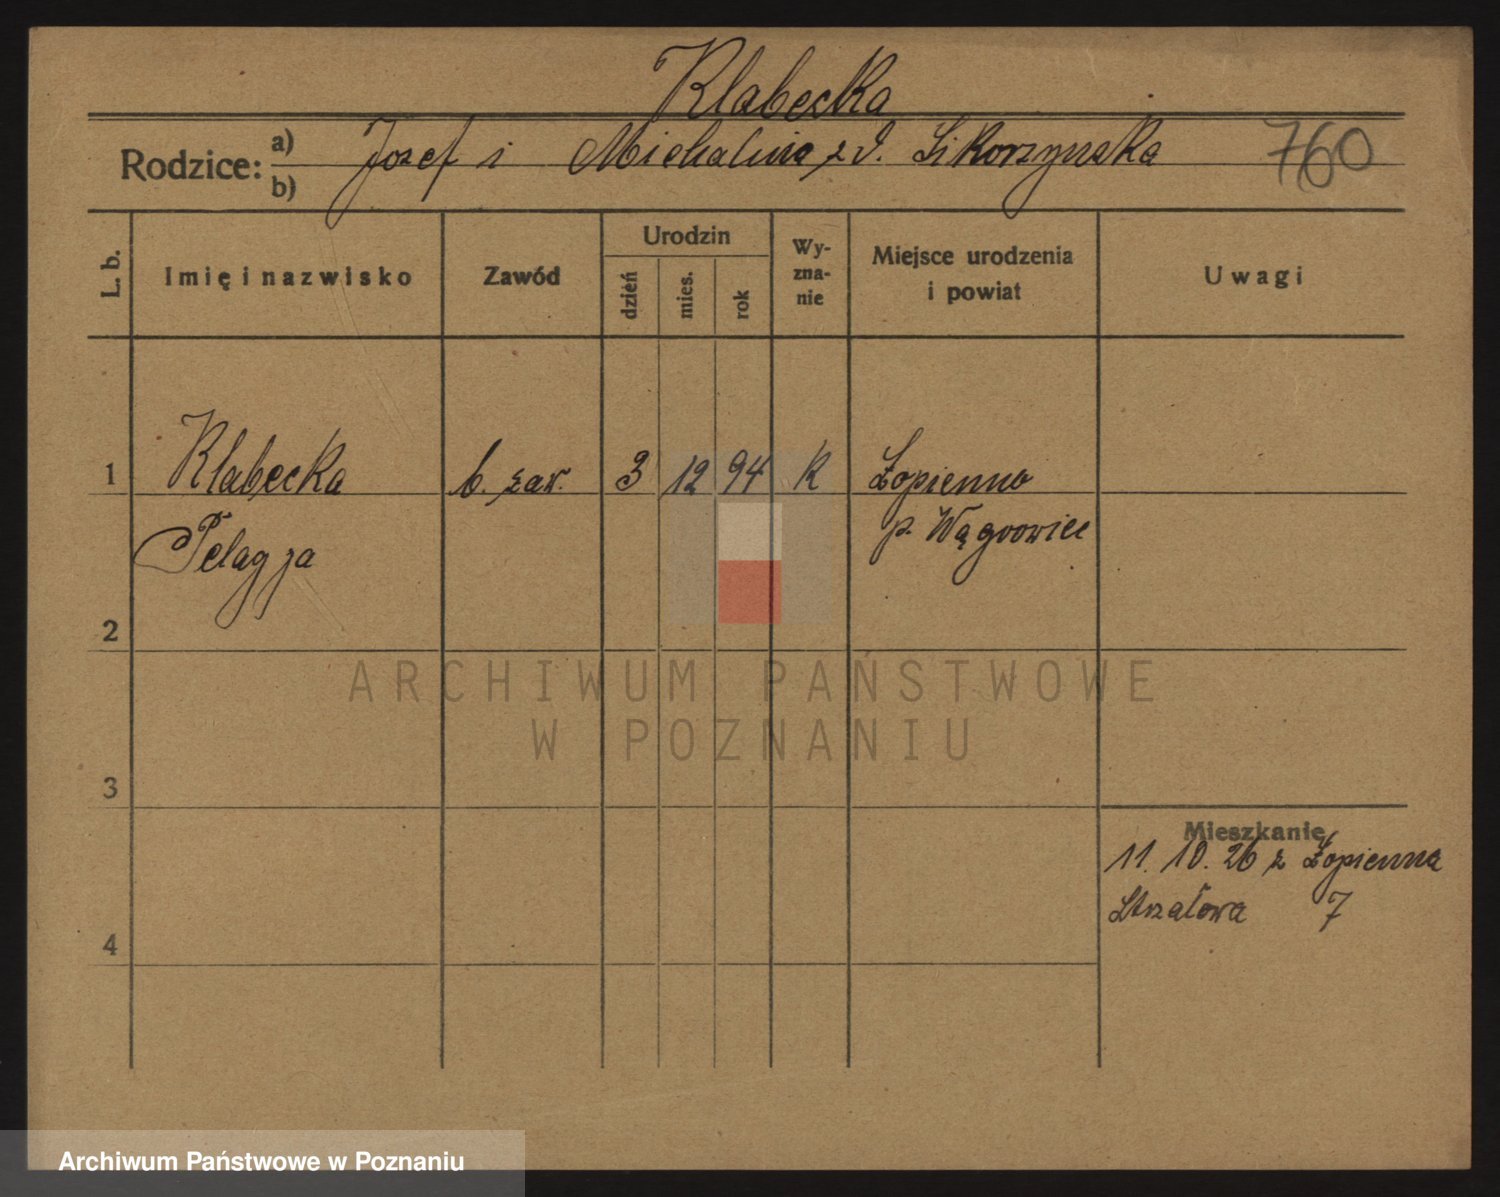 Kłabecka
Rodzice: a) Jozef i Michalina z d. Sikorzynska 760
b)
L. b.
Imię i nazwisko
Zawód
Urodzin
dzień
mies.
rok
Wy-
zna-
nie
Miejsce urodzenia
i powiat
Uwagi
1 Kłabecka b. zaw. 3 12 94 K Łopienno
Pelagja p. Wągrowiec
2
3
Mieszkanie
11. 10. 26 z Łopienna
Strzałowa 7
4
ARCHIWUM PAŃSTWOWE
W POZNANIU
Archiwum Państwowe w Poznaniu